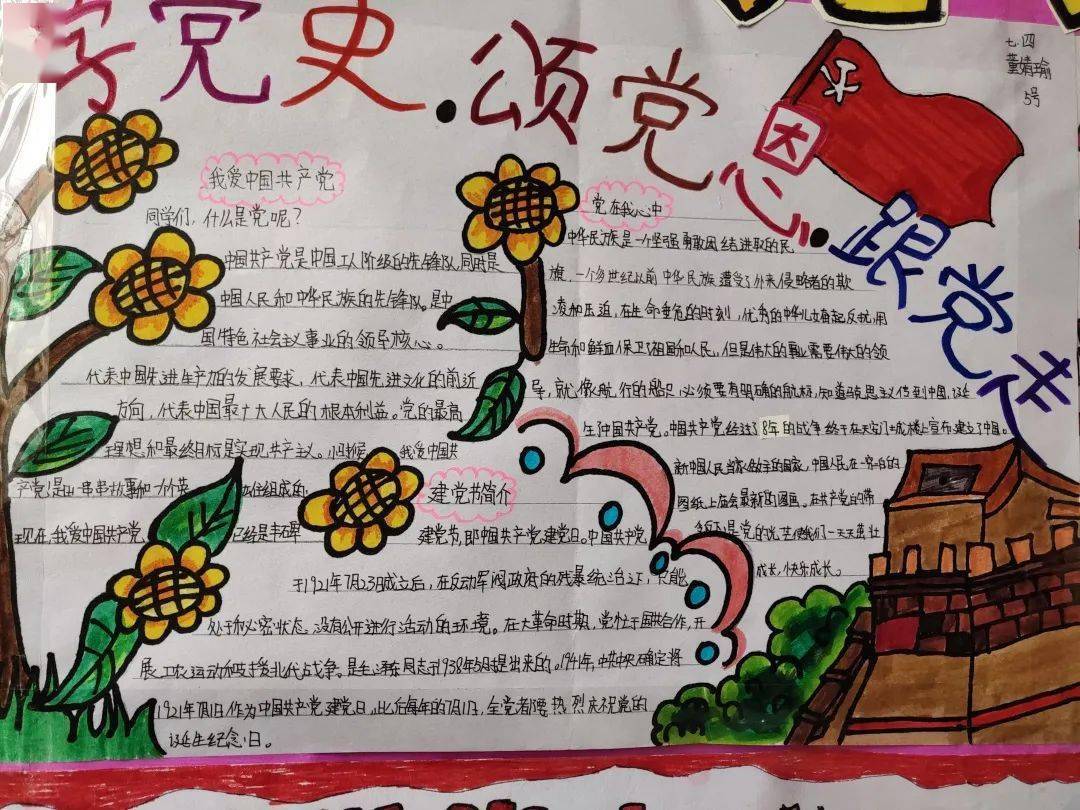 学党史·颂党恩·跟党走
七.四
董婧瑜
5号
我爱中国共产党
同学们,什么是党呢?
中国共产党是中国工人阶级的先锋队,同时是
中国人民和中华民族的先锋队。是中
国特色社会主义事业的领导核心。
代表中国先进生产力的发展要求,代表中国先进文化的前进
方向,代表中国最广大人民的根本利益。党的最高
理想和最终目标是实现共产主义。小时候 我爱中国共
产党是由一串串故事和
现在,我爱中国共产党 已经是
建党节简介
建党节,即中国共产党建党日。中国共产党
于1921年7月23日成立后,在反动军阀政府的残暴统治之下,只能
处于秘密状态,没有公开进行活动的环境。在大革命时期,党忙于国共合作,开
展工农运动和支援北伐战争。是毛泽东同志于1938年5月提出来的。1941年,中共中央确定将
1921年7月1日作为中国共产党建党日,此后每年的7月1日,全党都要热烈庆祝党的
诞生纪念日。
党在我心中
中华民族是一个坚强勇敢团结进取的民
族,一个多世纪以前中华民族遭受了外来侵略者的欺
凌和压迫,在生命垂危的时刻,优秀的中华儿女奋起反抗,用
生命和鲜血保卫祖国和人民,但是伟大的事业需要伟大的领
导,就像航行的船只必须要有明确的航标,知道马克思主义传到中国,诞
生了中国共产党。中国共产党经过了8年的战争终于在天安门城楼上宣布建立了中国。
新中国人民当家做主的国家,中国人民在一穷二白的
图纸上描绘最新的图画。在共产党的带
领下是党的光芒使我们一天天茁壮
成长,快乐成长。